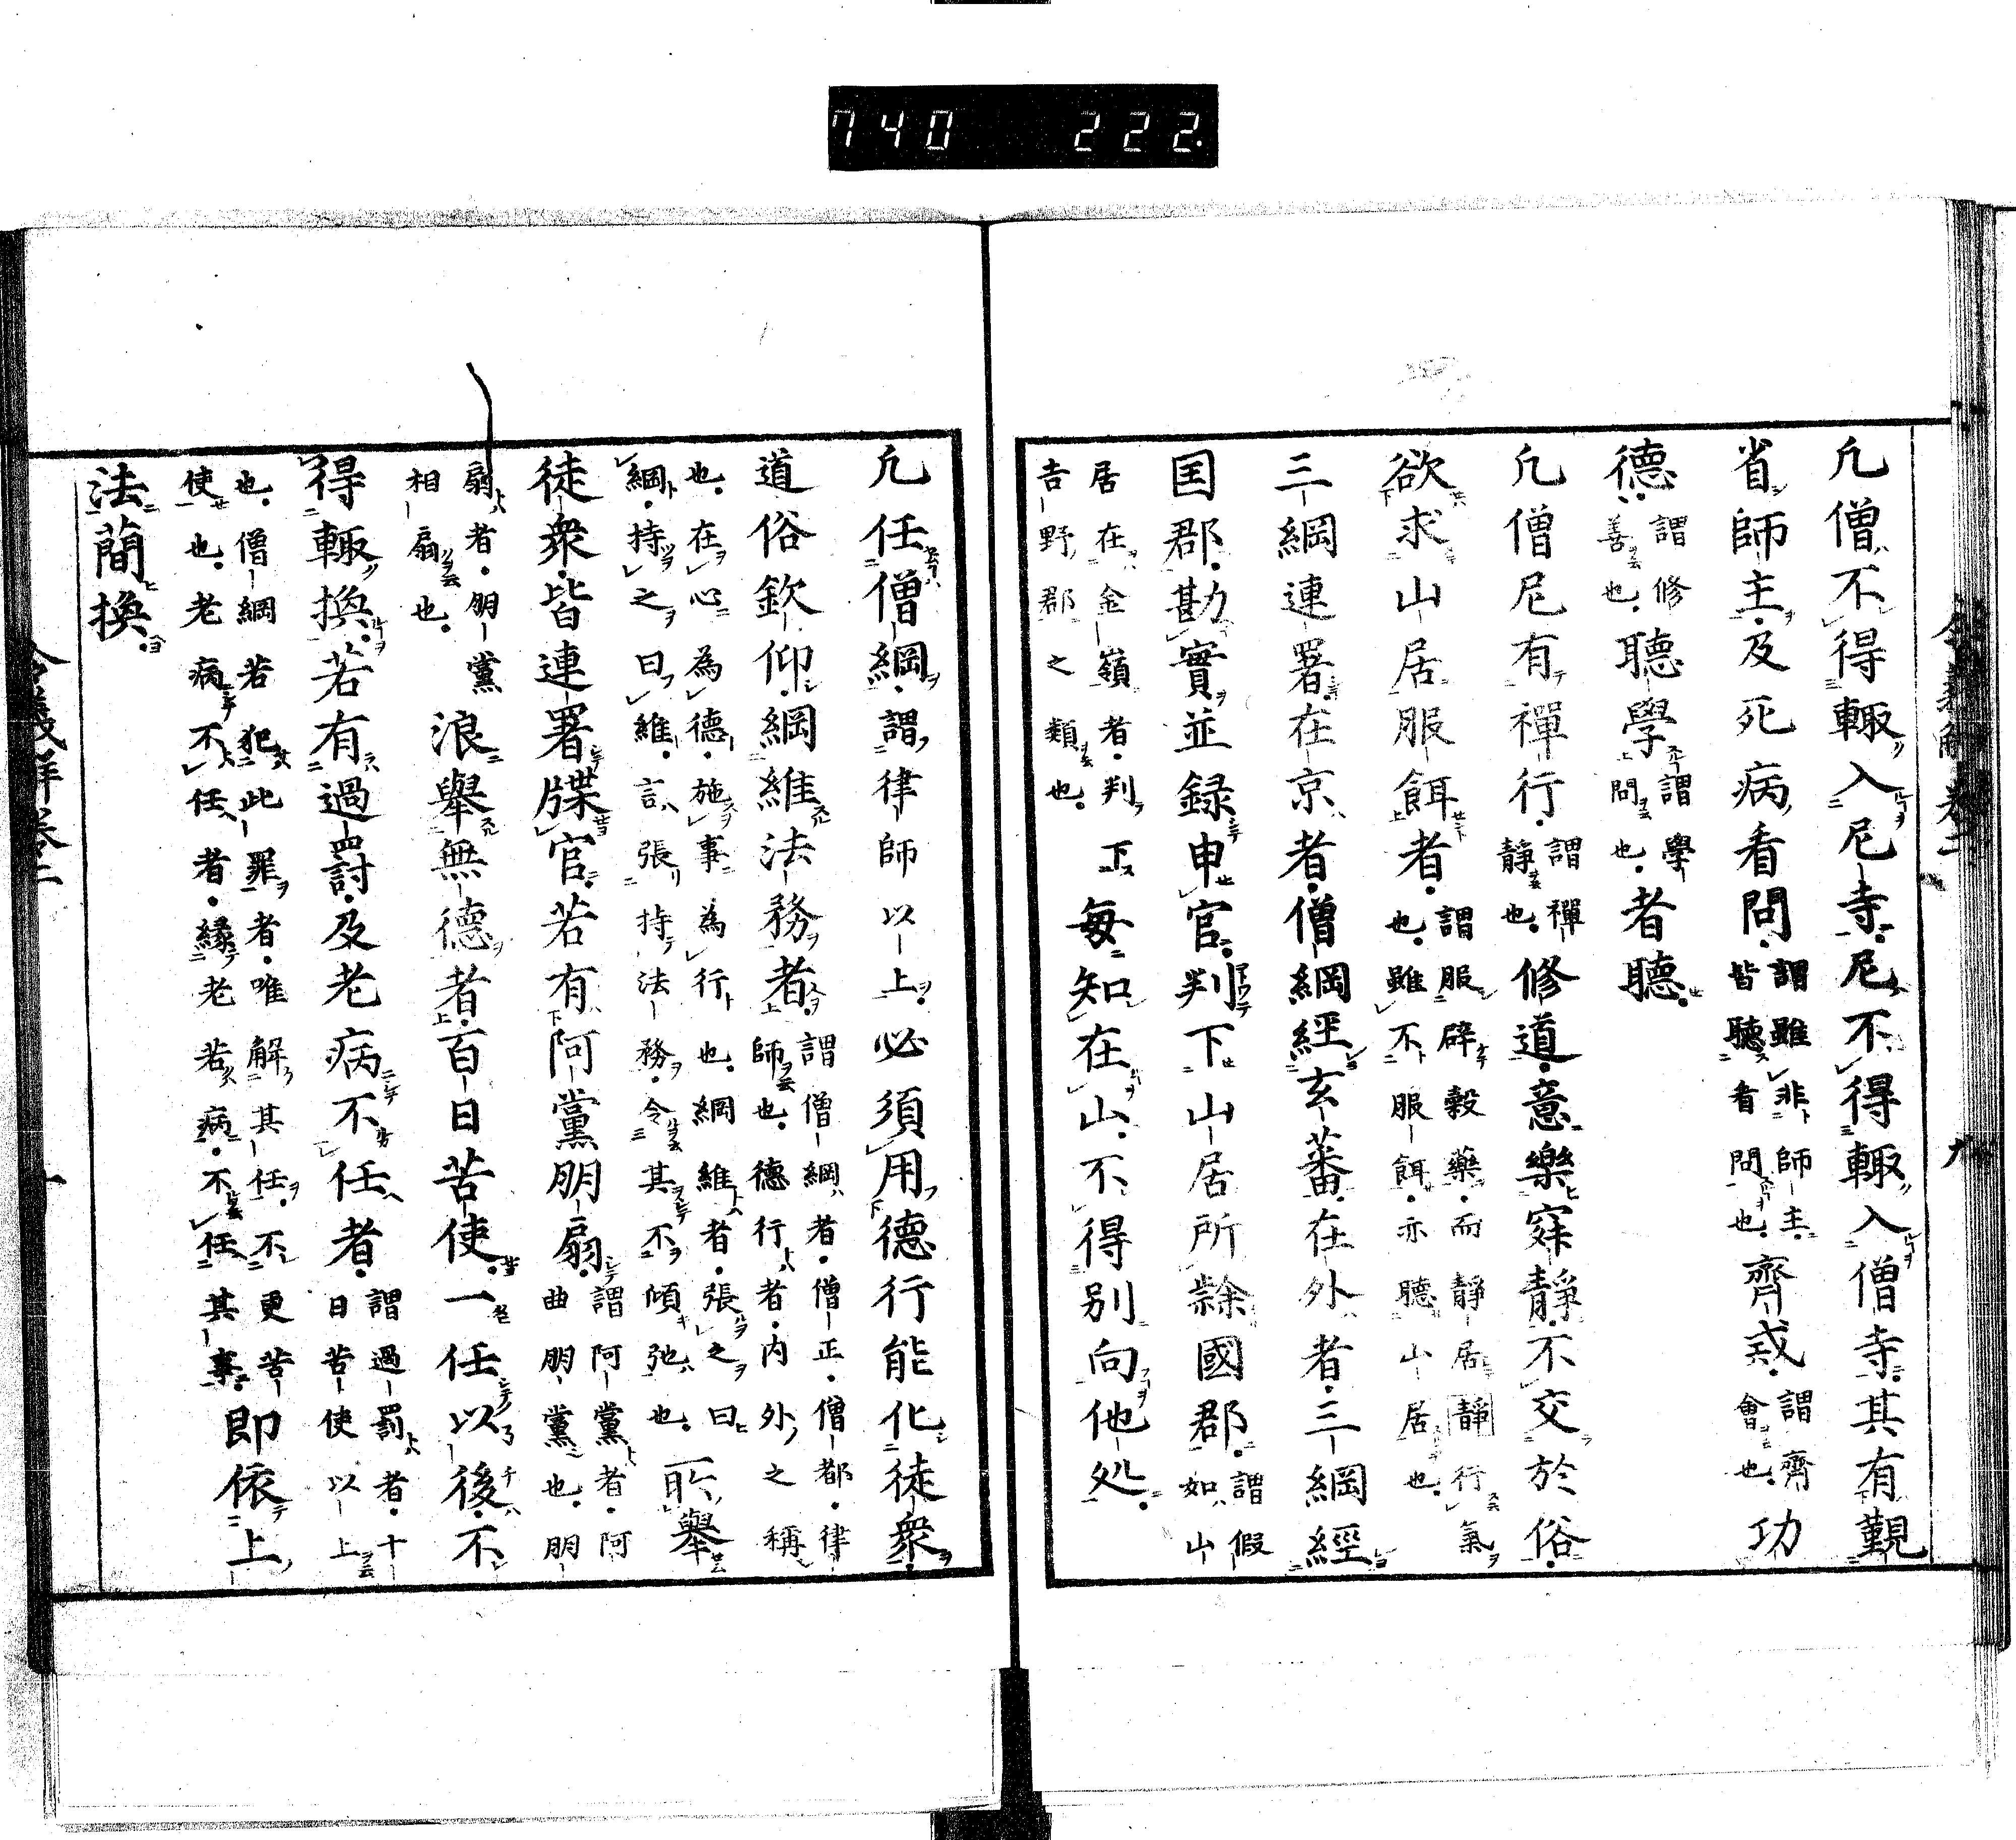 740 222
凡僧不得輙入尼寺尼不得輙入僧寺其有覲
省師主及死病看問謂雖非師主皆聽看問也齊戒謂齊會也功
德謂修善也聽學謂學問也者聽
凡僧尼有禪行謂禪靜也修道意樂寂靜不交於俗
欲求山居服餌者謂服辟穀藥而靜居靜行氣也雖不服餌亦聽山居也
三綱連署在京者僧綱經玄蕃在外者三綱經
国郡勘實並録申官判下山居所隷國郡謂假如山
居在金嶺者判下吉野郡之類也毎知在山不得別向他処
凡任僧綱謂律師以上必須用德行能化徒衆
道俗欽仰綱維法務者謂僧綱者僧正僧都律師也德行者内外之稱
也在心為德施事為行也綱維者張之曰綱持之曰維言張持法務令其不傾弛也所舉
徒衆皆連署牒官若有阿黨朋扇謂阿黨者阿曲朋黨也朋
扇者朋黨相扇也浪舉無德者百日苦使一任以後不
得輙換若有過罸及老病不任者謂過罰者十日苦使以上
也僧綱若犯此罪者唯解其任不更苦使也老病不任者縁老若病不任其事即依上
法蕳換